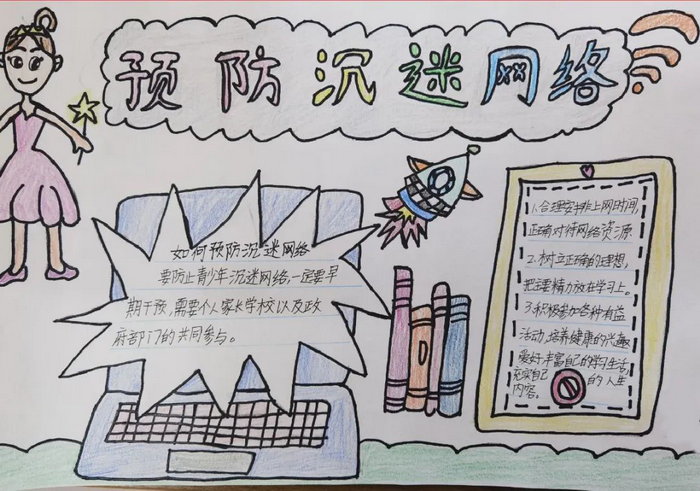 预防沉迷网络
如何预防沉迷网络
要防止青少年沉迷网络,一定要早
期干预,需要个人家长学校以及政
府部门的共同参与。
1.合理安排上网时间,
正确对待网络资源
2.树立正确的理想,
把理精力放在学习上。
3.积极参加各种有益
活动,培养健康的兴趣
爱好,丰富自己的学习生活,
充实自己的人生
内容。